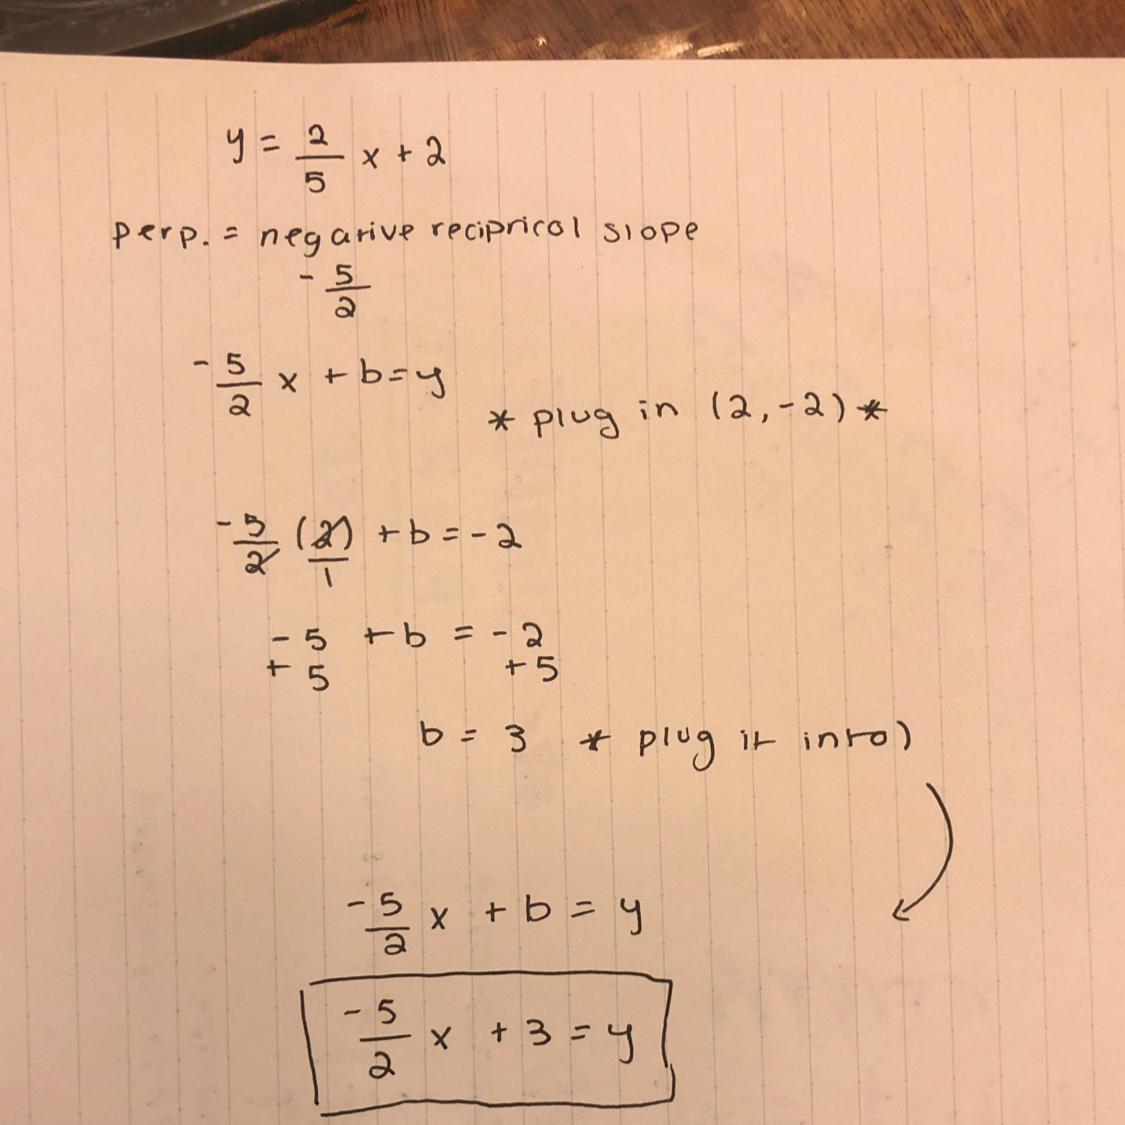 y = 2/5 x + 2
perp. = negative reciprical slope
- 5/2
- 5/2 x + b = y
* plug in (2, -2) *
- 5/2 (2)/1 + b = - 2
- 5 + b = - 2
+ 5 + 5
b = 3 * plug it into)
- 5/2 x + b = y
- 5/2 x + 3 = y